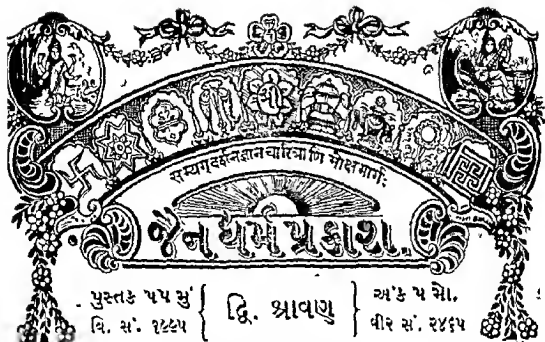 सम्यग्दर्शनज्ञानचारित्राणि मोक्षमार्गः
જૈન ધર્મ પ્રકાશ.
પુસ્તક ૫૫ મું
વિ. સં. ૧૯૯૫
દ્વિ. શ્રાવણ
અંક ૫ મો.
વીર સં. ૨૪૬૫